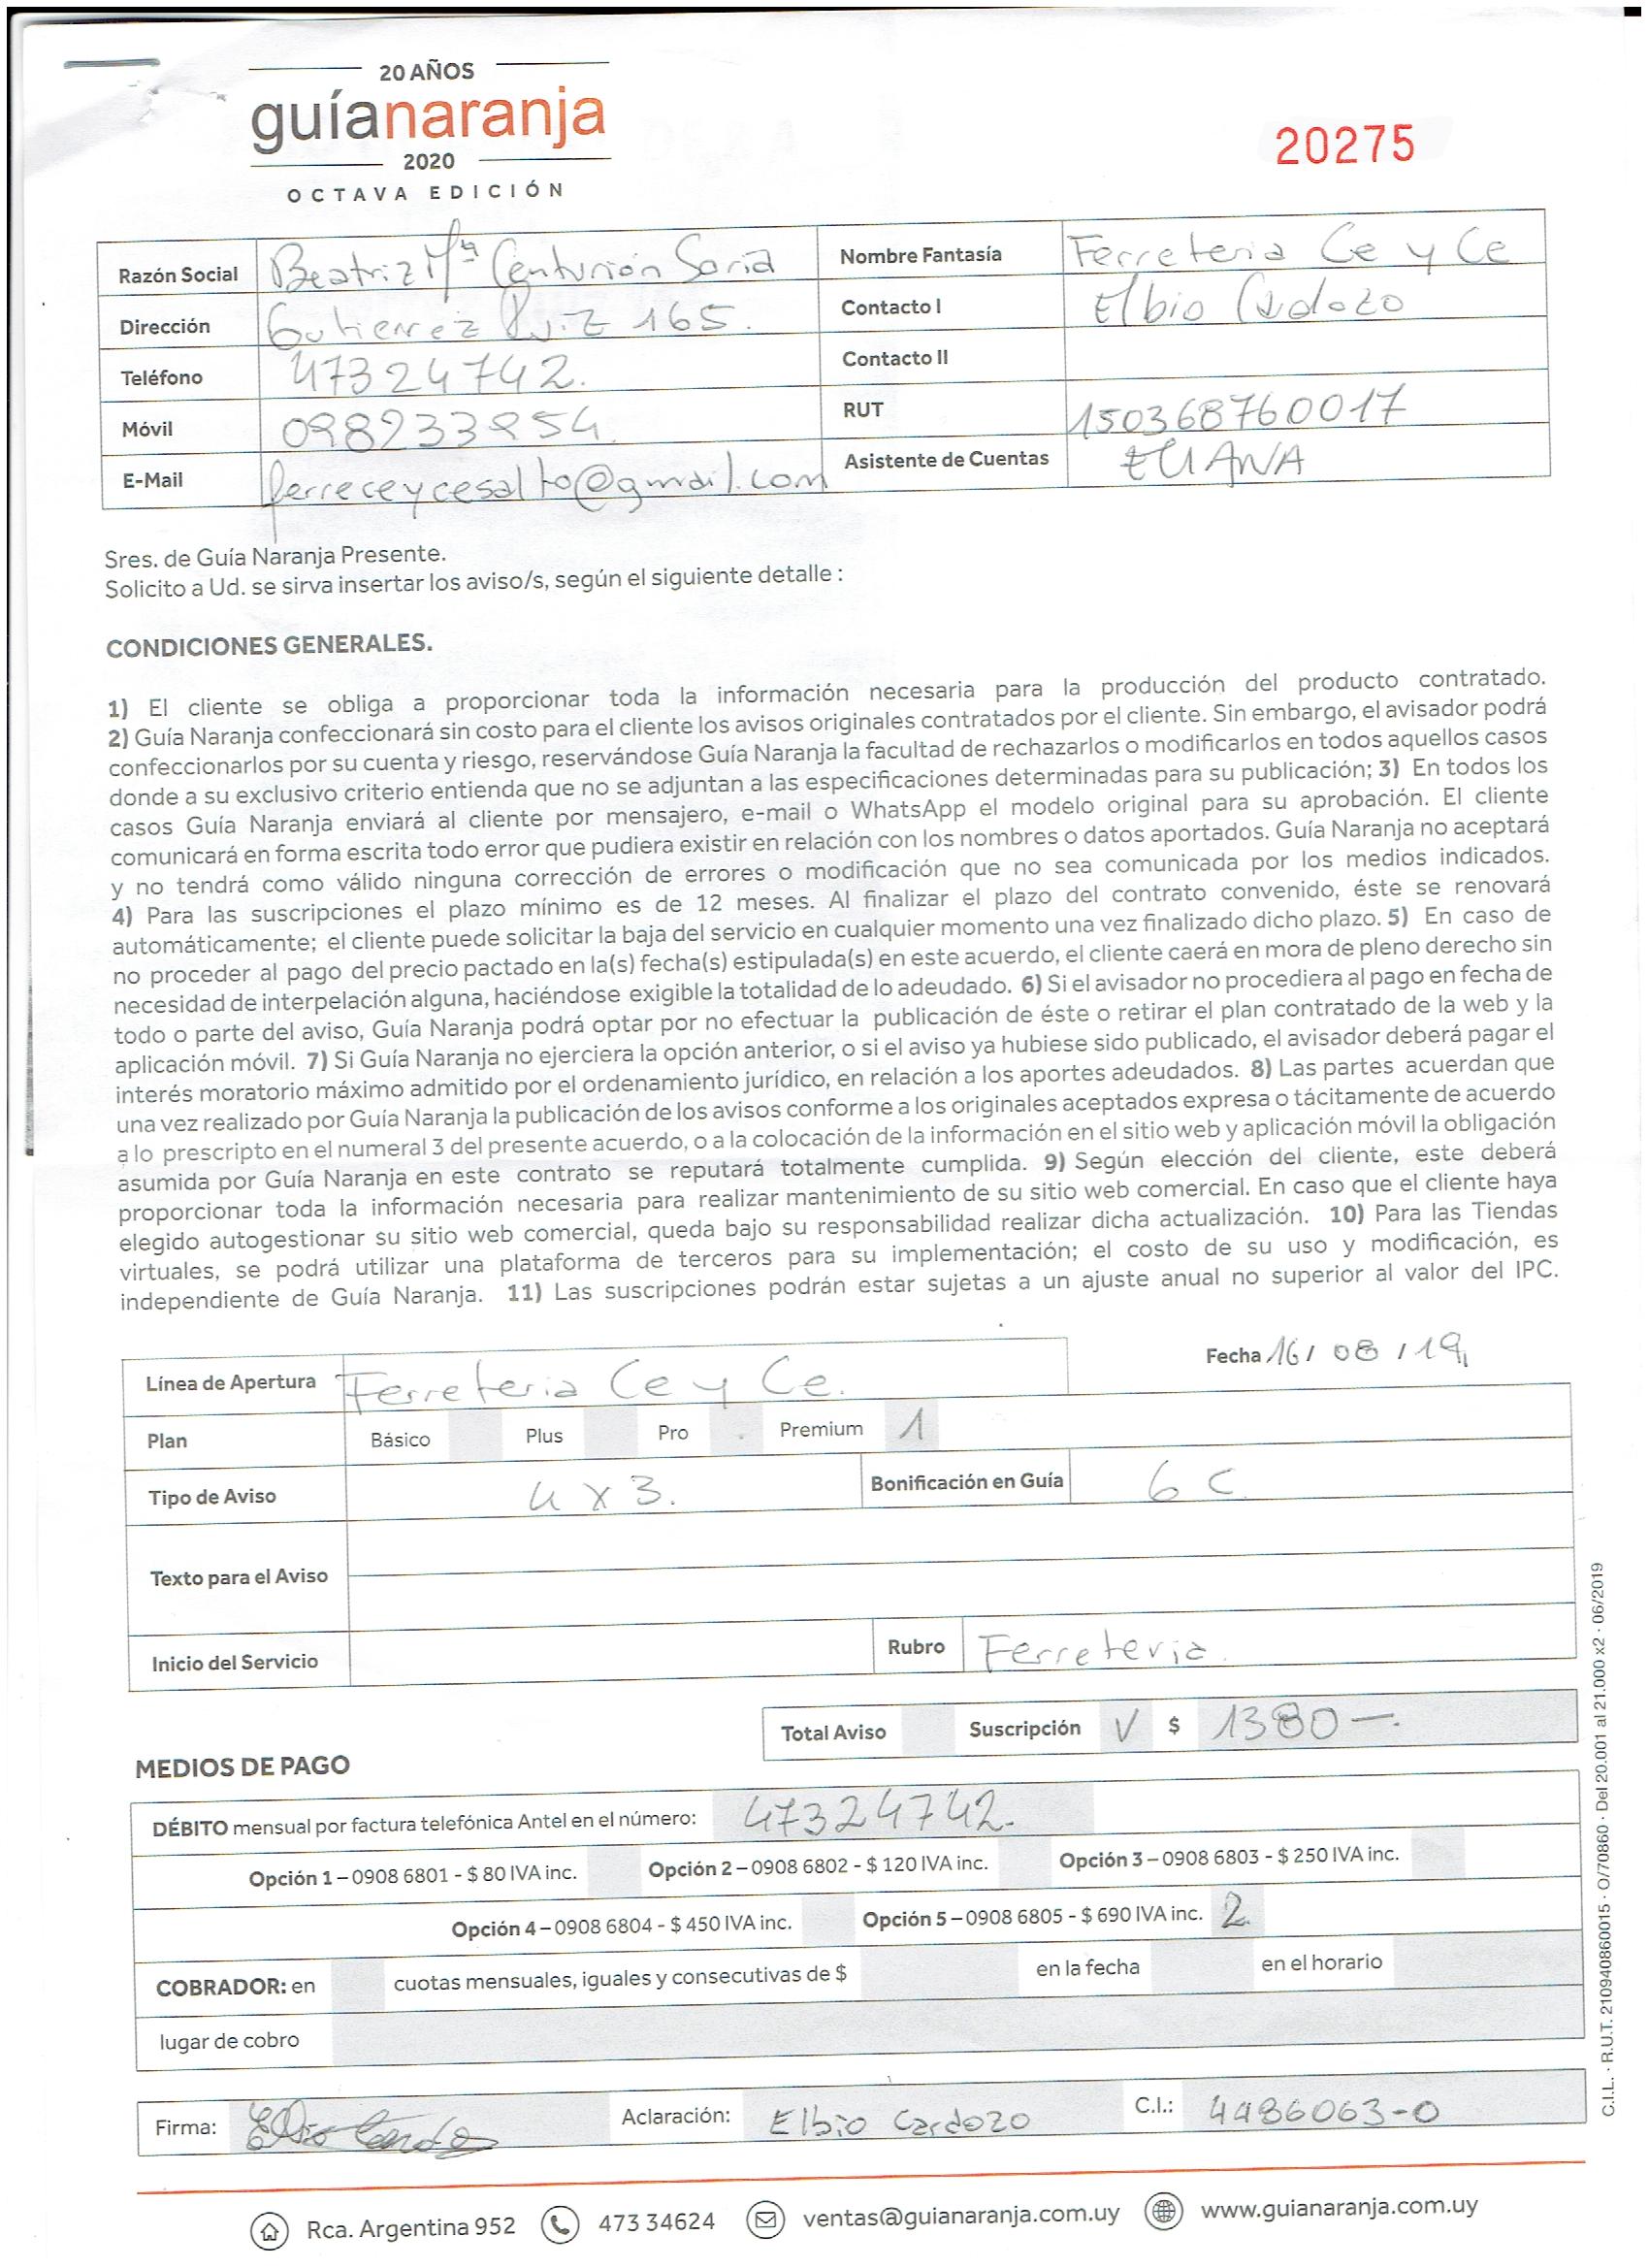 20 AÑOS
guíanaranja
2020
OCTAVA EDICIÓN
20275
Razón Social Beatriz Mª Centurión Soria Nombre Fantasía Ferreteria Ce y Ce
Dirección Gutierrez Ruiz 165. Contacto I Elbio Cardozo
Teléfono 47324742. Contacto II
Móvil 098233854 RUT 150368760017
E-Mail ferreceycesalto@gmail.com Asistente de Cuentas ELIANA
Sres. de Guía Naranja Presente.
Solicito a Ud. se sirva insertar los aviso/s, según el siguiente detalle :
CONDICIONES GENERALES.
1) El cliente se obliga a proporcionar toda la información necesaria para la producción del producto contratado.
2) Guía Naranja confeccionará sin costo para el cliente los avisos originales contratados por el cliente. Sin embargo, el avisador podrá
confeccionarlos por su cuenta y riesgo, reservándose Guía Naranja la facultad de rechazarlos o modificarlos en todos aquellos casos
donde a su exclusivo criterio entienda que no se adjuntan a las especificaciones determinadas para su publicación; 3) En todos los
casos Guía Naranja enviará al cliente por mensajero, e-mail o WhatsApp el modelo original para su aprobación. El cliente
comunicará en forma escrita todo error que pudiera existir en relación con los nombres o datos aportados. Guía Naranja no aceptará
y no tendrá como válido ninguna corrección de errores o modificación que no sea comunicada por los medios indicados.
4) Para las suscripciones el plazo mínimo es de 12 meses. Al finalizar el plazo del contrato convenido, éste se renovará
automáticamente; el cliente puede solicitar la baja del servicio en cualquier momento una vez finalizado dicho plazo. 5) En caso de
no proceder al pago del precio pactado en la(s) fecha(s) estipulada(s) en este acuerdo, el cliente caerá en mora de pleno derecho sin
necesidad de interpelación alguna, haciéndose exigible la totalidad de lo adeudado. 6) Si el avisador no procediera al pago en fecha de
todo o parte del aviso, Guía Naranja podrá optar por no efectuar la publicación de éste o retirar el plan contratado de la web y la
aplicación móvil. 7) Si Guía Naranja no ejerciera la opción anterior, o si el aviso ya hubiese sido publicado, el avisador deberá pagar el
interés moratorio máximo admitido por el ordenamiento jurídico, en relación a los aportes adeudados. 8) Las partes acuerdan que
una vez realizado por Guía Naranja la publicación de los avisos conforme a los originales aceptados expresa o tácitamente de acuerdo
a lo prescripto en el numeral 3 del presente acuerdo, o a la colocación de la información en el sitio web y aplicación móvil la obligación
asumida por Guía Naranja en este contrato se reputará totalmente cumplida. 9) Según elección del cliente, este deberá
proporcionar toda la información necesaria para realizar mantenimiento de su sitio web comercial. En caso que el cliente haya
elegido autogestionar su sitio web comercial, queda bajo su responsabilidad realizar dicha actualización. 10) Para las Tiendas
virtuales, se podrá utilizar una plataforma de terceros para su implementación; el costo de su uso y modificación, es
independiente de Guía Naranja. 11) Las suscripciones podrán estar sujetas a un ajuste anual no superior al valor del IPC.
Fecha 16 / 08 / 19
Línea de Apertura Ferreteria Ce y Ce.
Plan Básico Plus Pro Premium 1
Tipo de Aviso 4 x 3. Bonificación en Guía 6 C
Texto para el Aviso
Inicio del Servicio Rubro Ferreteria.
Total Aviso Suscripción V $ 1380 —.
MEDIOS DE PAGO
DÉBITO mensual por factura telefónica Antel en el número: 47324742.
Opción 1 – 0908 6801 - $ 80 IVA inc. Opción 2 – 0908 6802 - $ 120 IVA inc. Opción 3 – 0908 6803 - $ 250 IVA inc.
Opción 4 – 0908 6804 - $ 450 IVA inc. Opción 5 – 0908 6805 - $ 690 IVA inc. 2
COBRADOR: en cuotas mensuales, iguales y consecutivas de $ en la fecha en el horario
lugar de cobro
Firma: Elbio Cardozo Aclaración: Elbio Cardozo C.I.: 4486063-0
Rca. Argentina 952 473 34624 ventas@guianaranja.com.uy www.guianaranja.com.uy
C.I.L. · R.U.T. 210940860015 · O/70860 · Del 20.001 al 21.000 x2 · 06/2019